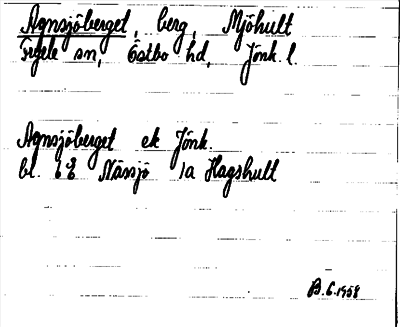 Agnsjöberget, berg, Mjöhult
Tryele sn, Östbo hd, Jönk. l.
Agnsjöberget ek Jönk.
bl. 6E Nässjö 1a Hagshult
B.G. 1958